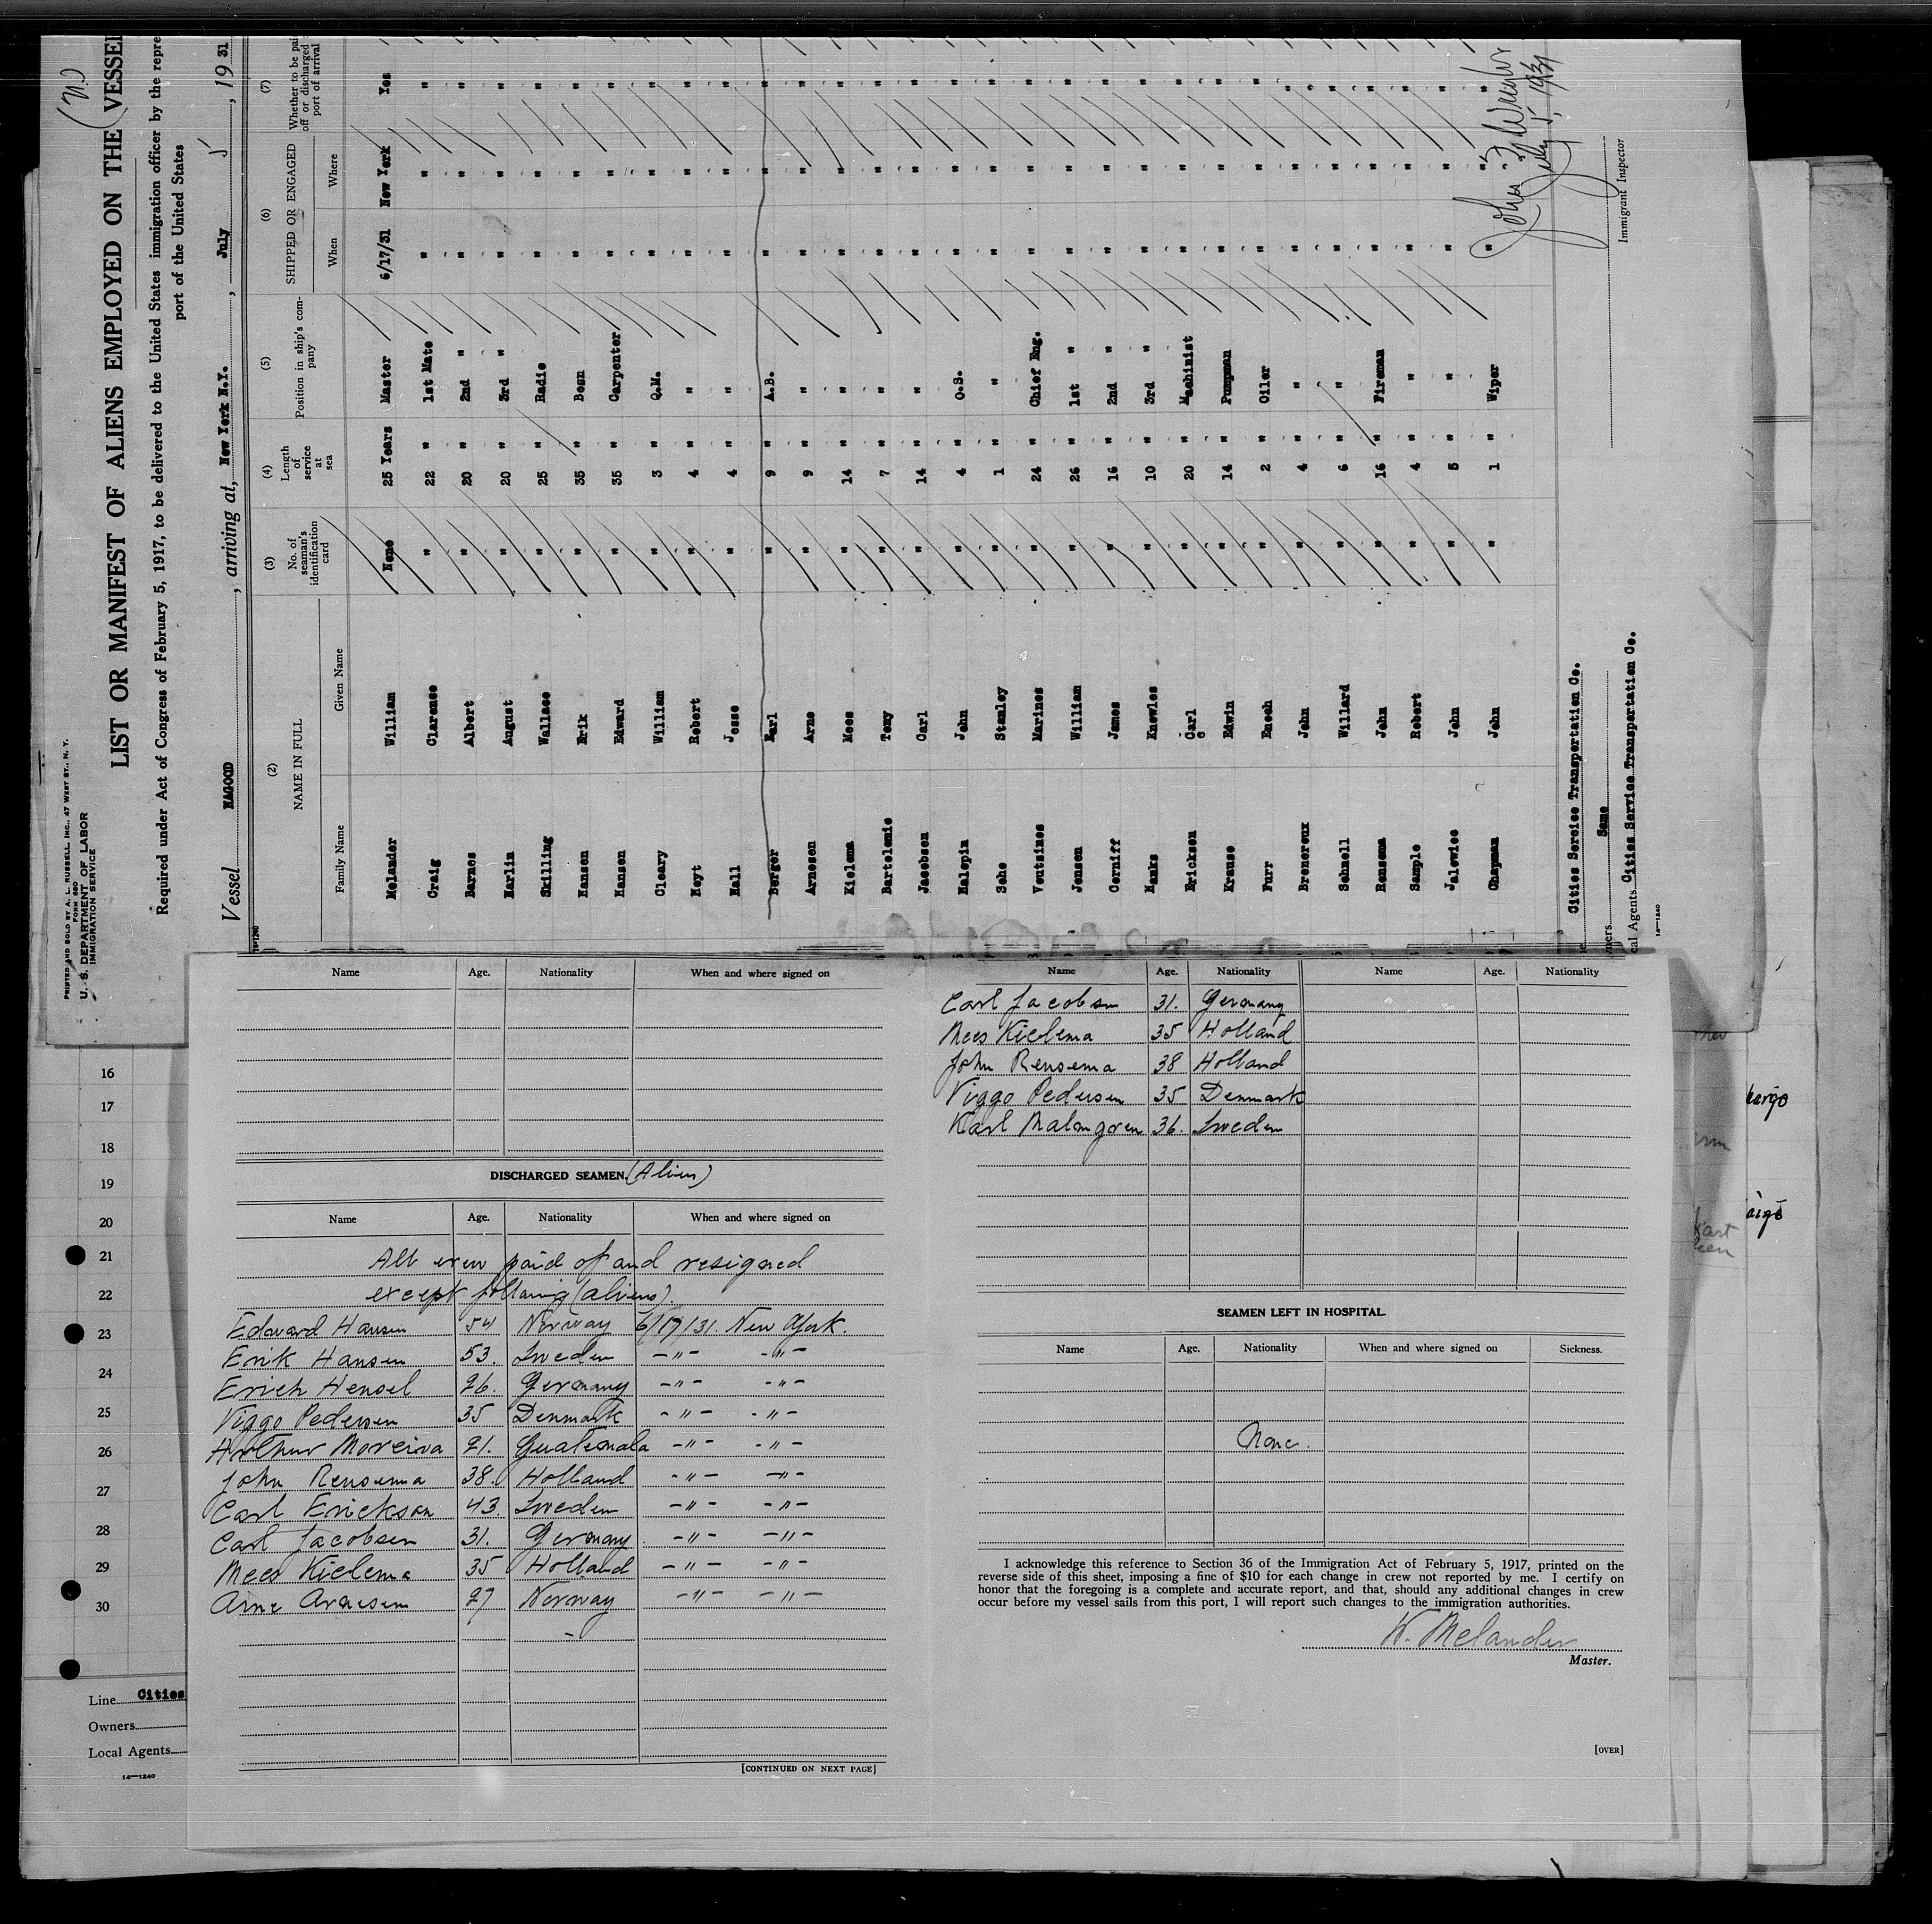 PRINTED AND SOLD BY A. L. RUSSELL, INC., 47 WEST ST., N. Y.
FORM 680
U. S. DEPARTMENT OF LABOR
IMMIGRATION SERVICE
LIST OR MANIFEST OF ALIENS EMPLOYED ON THE VESSEL
Required under Act of Congress of February 5, 1917, to be delivered to the United States immigration officer by the repre
port of the United States
Vessel HAGOOD, arriving at, New York N.Y., July 5, 19 31
(2) (3) (4) (5) (6) (7)
NAME IN FULL No. of seaman's identification card Length of service at sea Position in ship's company SHIPPED OR ENGAGED Whether to be pai off or discharged port of arrival
Family Name Given Name When Where
Melander William None 25 Years Master 6/17/31 New York Yes
Craig Clarence " 22 " 1st Mate " " "
Barnes Albert " 20 " 2nd " " " "
Harlin August " 20 " 3rd " " " "
Skilling Wallace " 25 " Radio " " "
Hansen Erik " 35 " Bosn " " "
Hansen Edward " 35 " Carpenter " " "
Cleary William " 3 " Q.M. " " "
Hoyt Robert " 4 " " " " "
Hall Jesse " 4 " " " " "
Berger Earl " 9 " A.B. " " "
Arnesen Arne " 9 " " " " "
Kielema Mees " 14 " " " " "
Bartolomie Tony " 7 " " " " "
Jacobsen Carl " 14 " " " " "
Halepin John " 4 " O.S. " " "
Soho Stanley " 1 " " " " "
Voutsines Marinos " 24 " Chief Eng. " " "
Jensen William " 26 " 1st " " " "
Corniff James " 16 " 2nd " " " "
Hanks Knowles " 10 " 3rd " " " "
Erickson Carl " 20 " Machinist " " "
Krause Edwin " 14 " Pumpman " " "
Furr Enoch " 2 " Oiler " " "
Brenereux John " 4 " " " " "
Schnell Willard " 6 " " " " "
Rensema John " 16 " Fireman " " "
Sample Robert " 4 " " " " "
Jalewicc John " 5 " " " " "
Chapman John " 1 " Wiper " " "
Cities Sercice Transportation Co.
Same
cal Agents Cities Service Transportation Co.
14—1240
July 5, 1931
Immigrant Inspector
16
17
18
19
20
21
22
23
24
25
26
27
28
29
30
Line Cities
Owners
Local Agents
14—1240
Name Age. Nationality When and where signed on
DISCHARGED SEAMEN. (Alien)
Name Age. Nationality When and where signed on
All crew paid of and resigned
except following (aliens).
Edward Hansen 54 Norway 6/17/31. New York.
Erik Hansen 53. Sweden -"- -"-
Erich Hensel 26. Germany -"- -"-
Viggo Pedersen 35 Denmark -"- -"-
Arthur Moreira 21. Guatemala -"- -"-
John Rensema 38. Holland -"- -"-
Carl Erickson 43. Sweden -"- -"-
Carl Jacobsen 31. Germany -"- -"-
Mees Kielema 35 Holland -"- -"-
Arne Arnesen 27 Norway -"- -"-
[CONTINUED ON NEXT PAGE]
Name Age. Nationality Name Age. Nationality
Carl Jacobsen 31. Germany
Mees Kielema 35 Holland
John Rensema 38 Holland
Viggo Pedersen 35 Denmark
Karl Malmgren 36. Sweden
SEAMEN LEFT IN HOSPITAL.
Name Age. Nationality When and where signed on Sickness.
None.
I acknowledge this reference to Section 36 of the Immigration Act of February 5, 1917, printed on the
reverse side of this sheet, imposing a fine of $10 for each change in crew not reported by me. I certify on
honor that the foregoing is a complete and accurate report, and that, should any additional changes in crew
occur before my vessel sails from this port, I will report such changes to the immigration authorities.
W. Melander
Master.
[OVER]